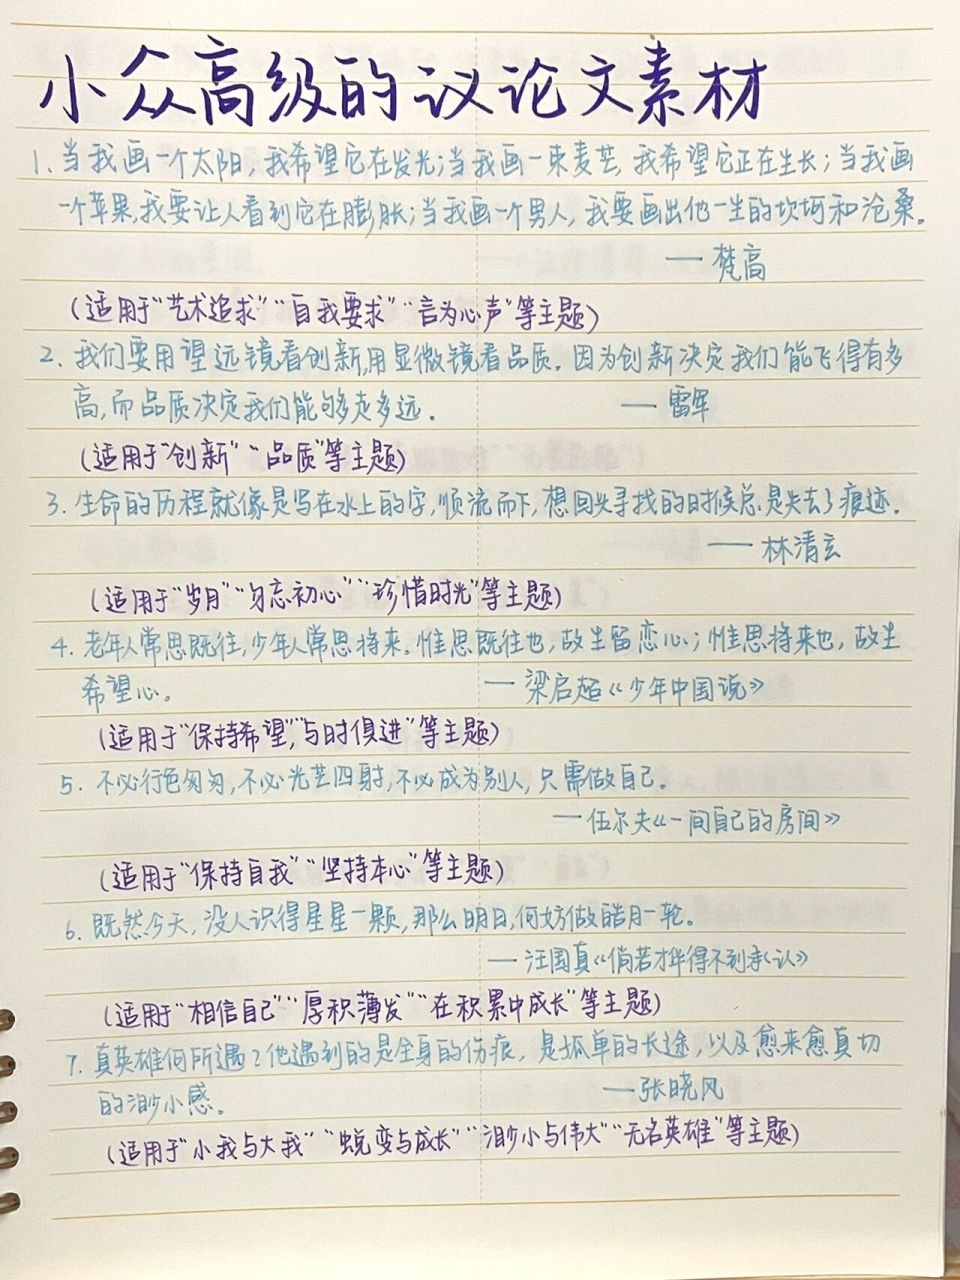 小众高级的议论文素材
1. 当我画一个太阳,我希望它在发光;当我画一束麦芒,我希望它正在生长;当我画
一个苹果,我要让人看到它在膨胀;当我画一个男人,我要画出他一生的坎坷和沧桑。
——梵高
(适用于“艺术追求”“自我要求”“言为心声”等主题)
2. 我们要用望远镜看创新,用显微镜看品质。因为创新决定我们能飞得有多
高,而品质决定我们能够走多远。 ——雷军
(适用于“创新”“品质”等主题)
3. 生命的历程就像是写在水上的字,顺流而下,想回头寻找的时候总是失去了痕迹。
——林清玄
(适用于“岁月”“勿忘初心”“珍惜时光”等主题)
4. 老年人常思既往,少年人常思将来。惟思既往也,故生留恋心;惟思将来也,故生
希望心。 ——梁启超《少年中国说》
(适用于“保持希望”,“与时俱进”等主题)
5. 不必行色匆匆,不必光芒四射,不必成为别人,只需做自己。
——伍尔夫《一间自己的房间》
(适用于“保持自我”“坚持本心”等主题)
6. 既然今天,没人识得星星一颗,那么明日,何妨做皓月一轮。
——汪国真《倘若才华得不到承认》
(适用于“相信自己”“厚积薄发”“在积累中成长”等主题)
7. 真英雄何所遇?他遇到的是全身的伤痕,是孤单的长途,以及愈来愈真切
的渺小感。 ——张晓风
(适用于“小我与大我”“蜕变与成长”“渺小与伟大”“无名英雄”等主题)